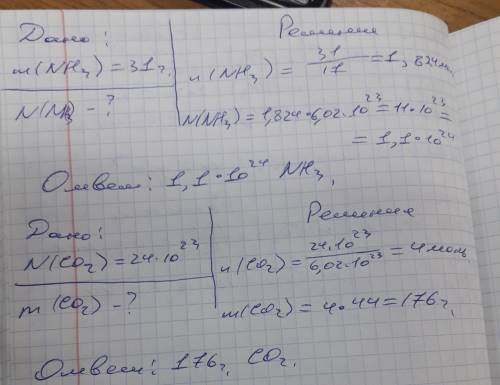 Дано:
m(NH₃) = 31 г.
N(NH₃) - ?
Решение
n(NH₃) = 31/17 = 1,824 м.
N(NH₃) = 1,824 · 6,02 · 10²³ = 11 · 10²³ =
= 1,1 · 10²⁴
Ответ: 1,1 · 10²⁴ NH₃.
Дано:
N(CO₂) = 24 · 10²³
m(CO₂) - ?
Решение
n(CO₂) = 24 · 10²³/6,02 · 10²³ = 4 моль.
m(CO₂) = 4 · 44 = 176 г.
Ответ: 176 г. CO₂.